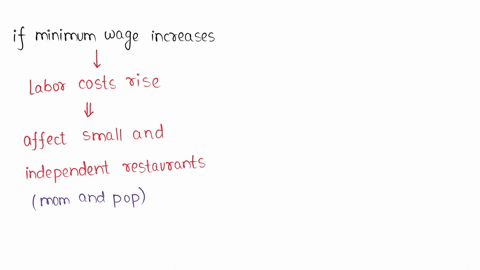 if minimum wage increases
↓
labor costs rise
⇓
affect small and
independent restaurants
(mom and pop)